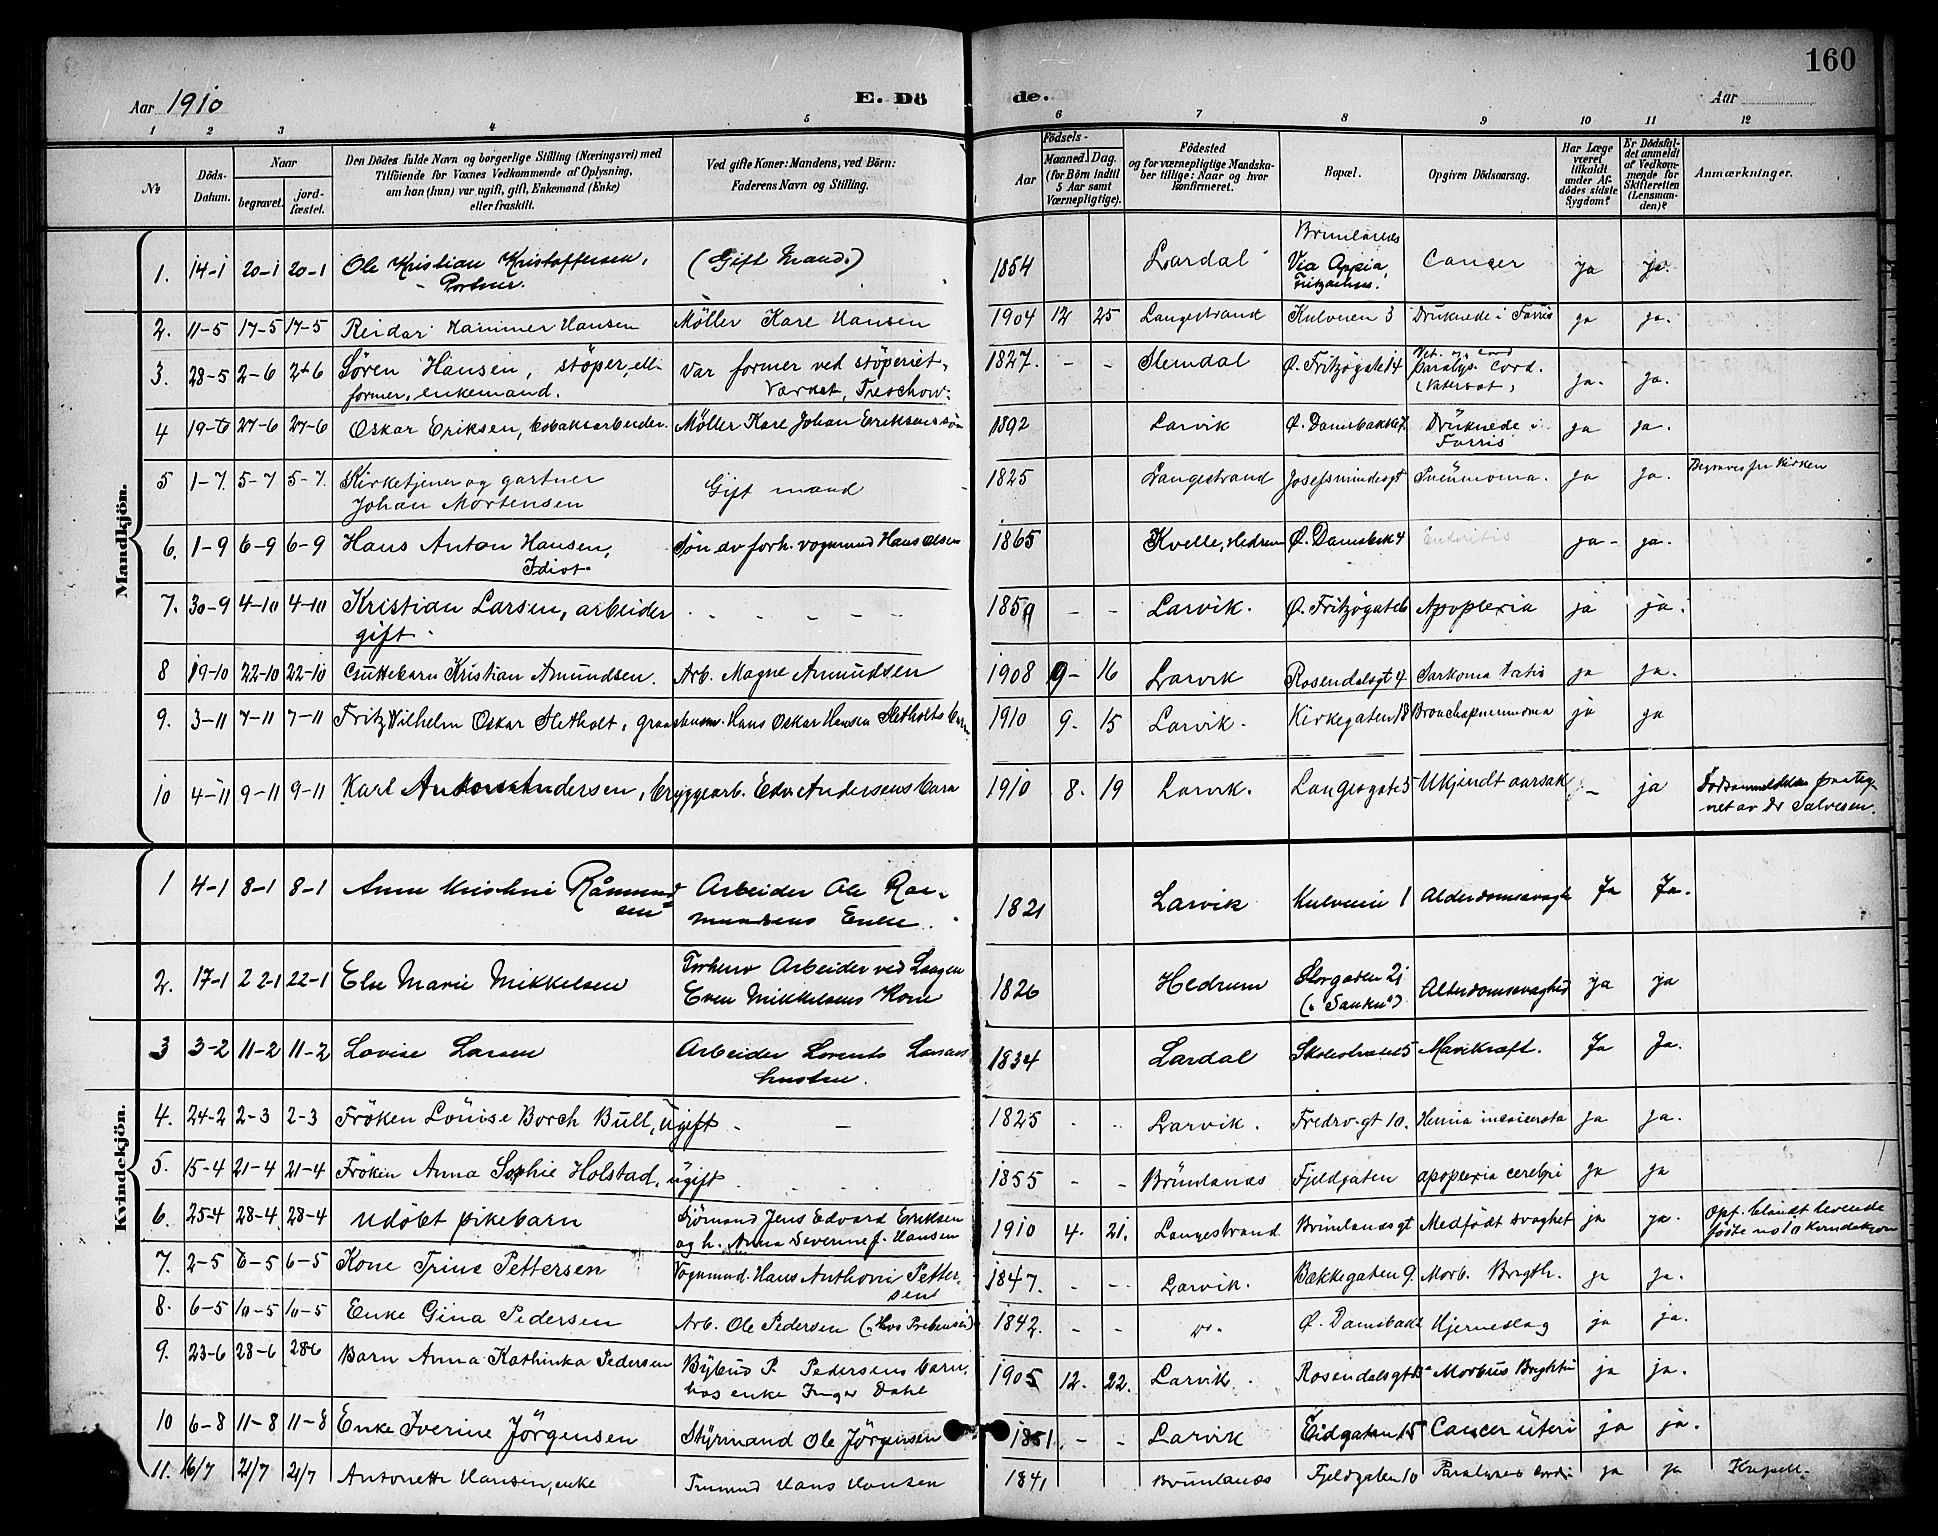 160
Aar 1910 E. Dö de. Aar
1 2 3 4 5 6 7 8 9 10 11 12
No
Döds-Datum.
Naar
begravet.
jord-fæstet.
Den Dödes fulde Navn og borgerlige Stilling (Næringsvei) med
Tilföiende for Voxnes Vedkommende af Oplysning,
om han (hun) var ugift, gift, Enkemand (Enke)
eller fraskilt.
Ved gifte Koner: Mandens, ved Börn:
Faderens Navn og Stilling.
Födsels-
Aar
Maaned. Dag.
(for Börn indtil
5 Aar samt
Værnepligtige).
Födested
og for værnepligtige Mandska-
ber tillige: Naar og hvor
konfirmeret.
Bopæl.
Opgiven Dödsaarsag.
Har Læge
været
tilkaldt
under Af-
dödes sidste
Sygdom?
Er Dödsfal-
det anmeldt
af Vedkom-
mende for
Skifteretten
(Lensman-
den)?
Anmærkninger.
Mandkjön.
1. 14-1 20-1 20-1 Ole Kristian Kristoffersen, (Gift Mand.) 1854 Lardal Brunlanes Cancer ja ja.
Portner. Via Appia,
Fritzøehus.
2. 11-5 17-5 17-5 Reidar Hammer Hansen Møller Karl Hansen 1904 12 25 Langestrand Kulveien 3 Druknede i Farris ja ja.
3. 28-5 2-6 2-6 Søren Hansen, støper, eller var former ved støperiet, 1827. - - Slemdal Ø. Fritzøgate 14 Paralys. Cord. ja. ja.
former, enkemand. Værket, Treschow.
4 19-6 27-6 27-6 Oskar Eriksen, Møller Karl Johan Eriksens søn 1892 Larvik Ø. Damsbakke 7. Drüknede i ja ja.
Farris
5 1-7. 5-7 5-7. Kirketjener og gartner Gift mand 1825 Langestrand Josefsmindesgt Pneumonia. ja ja. Begraves fra Kirken
Johan Mortensen
6. 1-9 6-9 6-9 Hans Anton Hansen, Søn av forh. vognmand Hans Olsen 1865 Kvelle, Hedrum Ø. Damsbak 4 Enteritis ja- ja.
Idiot.
7. 30-9 4-10 4-10 Kristian Larsen, arbeider - - - - 1859 - - Larvik. Ø. Fritzøgate 6 Apoplexia ja ja.
gift.
8 19-10 22-10 22-10 Guttebarn Kristian Amundsen. Arb. Magne Amundsen 1908 9- 16 Larvik Rosendalsgt 4 Sarkoma ja ja.
9. 3-11 7-11 7-11 Fritz Vilhelm Oskar Sletholt, Hans Oskar Hansen Sletholts barn 1910 9. 15 Larvik. Kirkegaten 18 Bronchopneumonia ja ja
10 4-11 9-11 9-11 Karl Andersen, bryggearb. Edv. Andersens barn 1910 8. 19 Larvik. Langesgate 5 Ukjendt aarsak - ja Dødsanmeldelse paateg-
net av Dr Salvesen.
Kvindekjön.
1 4-1 8-1 8-1 Anne Kristine Råmund Arbeider Ole Ra- 1821 Larvik Kulveien 1 Alderdomssvaghed Ja Ja.
sen mundsens Enke.
2. 17-1 22-1 22-1 Else Marie Mikkelsen Forhenv Arbeider ved Langen 1826 Hedrum Storgaden 21 Alderdomssvaghed ja ja
Even Mikkelsens Kone
3 3-2 11-2 11-2 Lovise Larsen Arbeider Lorents Larsens 1834 Lardal Skolestræde 5 Mavekræft. Ja Ja.
hustru.
4. 24-2 2-3 2-3 Frøken Louise Borch Bull, ugift - - 1825 - - Larvik. Fredrv. gt 10. Hernia ja ja.
5. 15-4 21-4 21-4 Frøken Anna Sophie Holstad, ugift 1855 - - Brunlanæs Fjeldgaten apoplexia cerebri ja ja
6. 25-4 28-4 28-4 udøbt pikebarn Sjømand Jens Edvard Eriksen 1910 4. 21. Langestrand Brunlanesgt Medfødt svaghet ja ja. Opf. blandt levende
og h. Anna Severine f. Hansen fødte no 10 Kvindekjøn
7. 2-5 6-5 6-5 Kone Trine Pettersen Vognmand. Hans Anthoni Petter- 1847. - - Larvik. Bækkegaten 9. Morb. Brigth. ja ja.
sens
8. 6-5 10-5 10-5 Enke Gina Pedersen Arb. Ole Pedersen 1842. - - Do. Ø. Damsbak 2 Hjerneslag ja ja.
9. 23-6 28-6 28-6 Barn Anna Kathinka Pedersen Bybud P. Pedersens barn, 1905 12. 22. Larvik. Rosendalsgt Morbus Brightii ja ja.
hos enke Inger Dahl
10 6-8 11-8 11-8 Enke Iverine Jørgensen Styrmand Ole Jørgensen 1851. - - Larvik Eidgaten 15 Cancer uteri ja ja.
11. 16/7 21/7 21/7 Antonette Hansen, enke Hans Hansen 1841 Brunlanæs Fjeldgaten 10 Paralyses cordis ja ja Kapell.